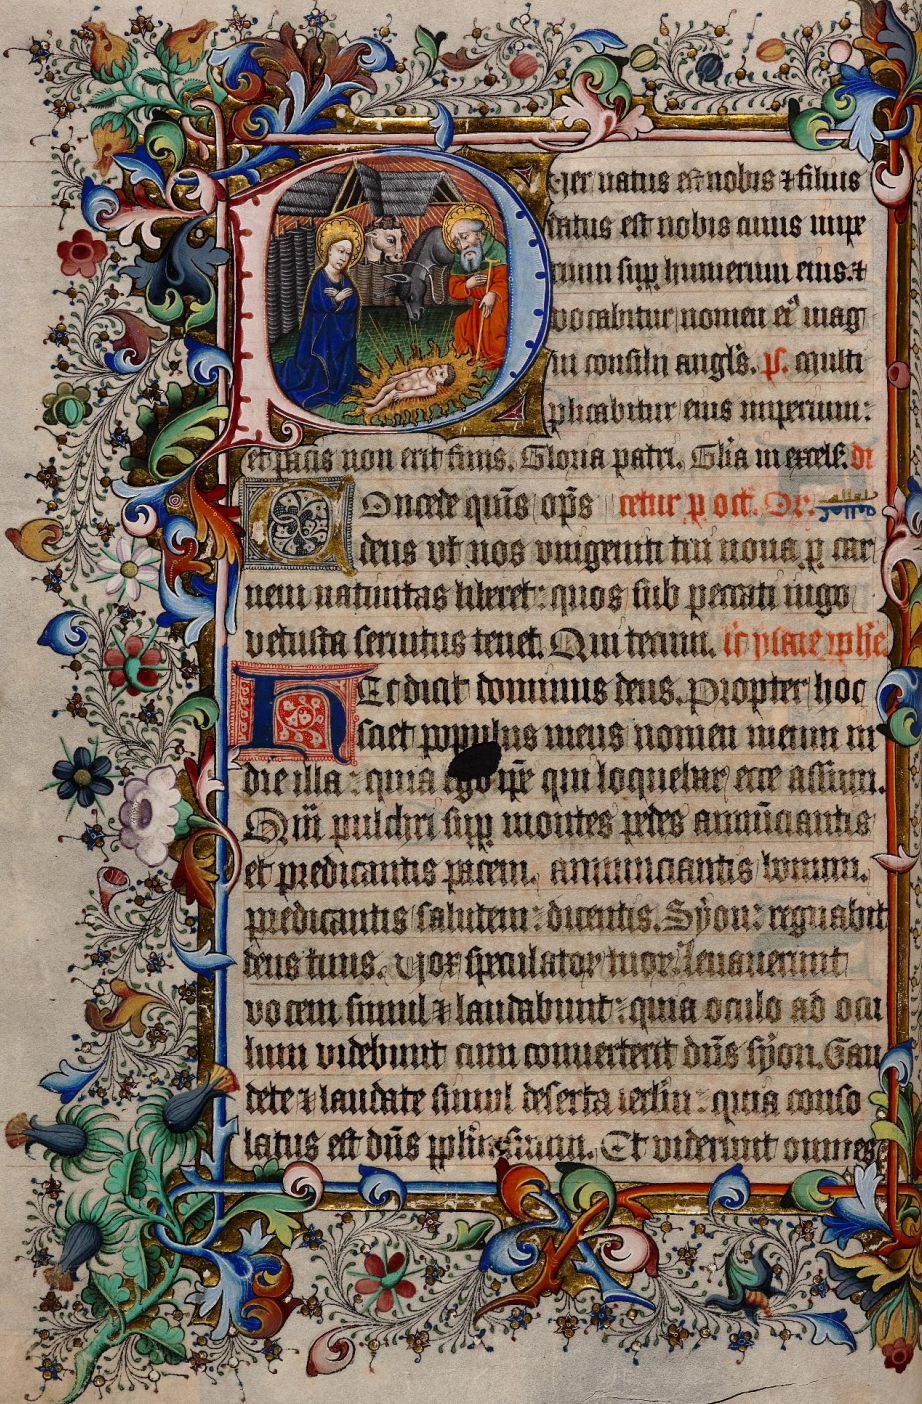 Puer natus est nobis ⁊ filius
datus est nobis cuius impe
rium sup humerum eius ⁊
vocabitur nomen ei' mag
ni consilii angl's. p̄s. multi
plicabitur eius imperium:
et pacis non erit finis. Gloria patri. Gl'ia in excels'. or
Concede quūs op̄s cetur p oct. Or.
deus vt nos vnigeniti tui noua p car
nem natiuitas liberet: quos sub peccati iugo
vetusta seruitus tenet. Qui tecum. ysaie pph̄e
Hec dicit dominus deus. Propter hoc
sciet populus meus nomen meum in
die illa: quia ego ip̄e qui loquebar ecce assum.
Qm̄ pulchri sup montes pedes annūciantis
et predicantis pacem. annunciantis bonum.
predicantis salutem: dicentis. Syon: regnabit
deus tuus. Vox speculatoꝝ tuoꝝ: leuauerunt
vocem simul ⁊ laudabunt: quia oculo ad ocu
lum videbunt cum conuerterit dn̄s syon. Gau
dete ⁊ laudate simul deserta ierl'm: quia conso
latus est dn̄s ppl'm suum. Et viderunt omnes